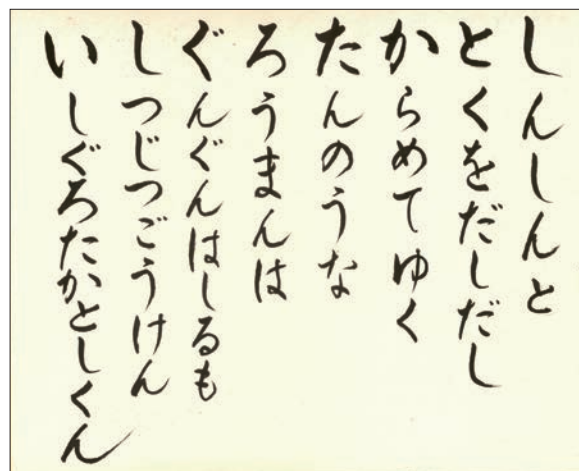 しんしんと
とくをだしだし
からめてゆく
たんのうな
ろうまんは
ぐんぐんはしるも
しつじつごうけん
いしぐろたかとしくん